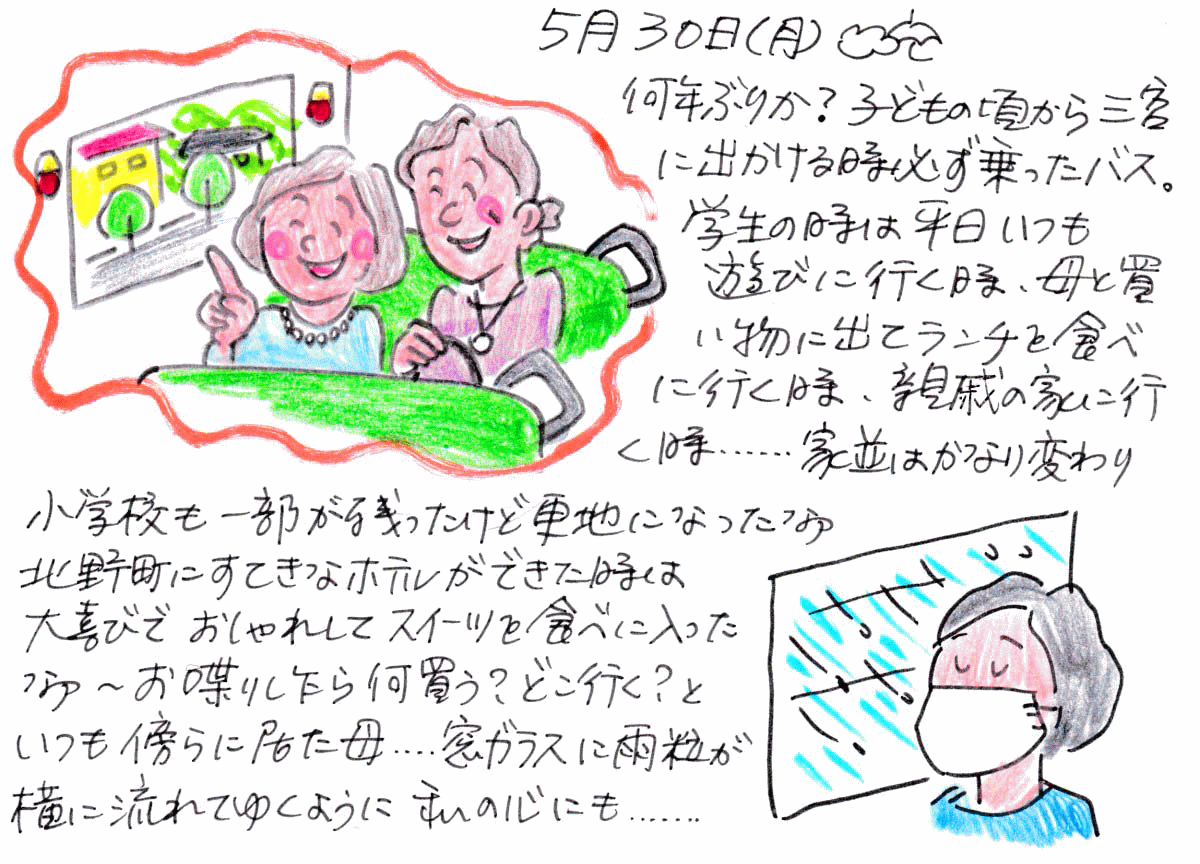 5月30日(月)
何年ぶりか?子どもの頃から三宮
に出かける時必ず乗ったバス。
学生の時は平日いつも
遊びに行く時、母と買
い物に出てランチを食べ
に行く時、親戚の家に行
く時……家並はかなり変わり
小学校も一部が残ったけど更地になったなァ
北野町にすてきなホテルができた時は
大喜びでおしゃれしてスイーツを食べに入った
なァ~お喋りしたら何買う?どこ行く?と
いつも傍らに居た母….窓ガラスに雨粒が
横に流れてゆくように私の心にも…….